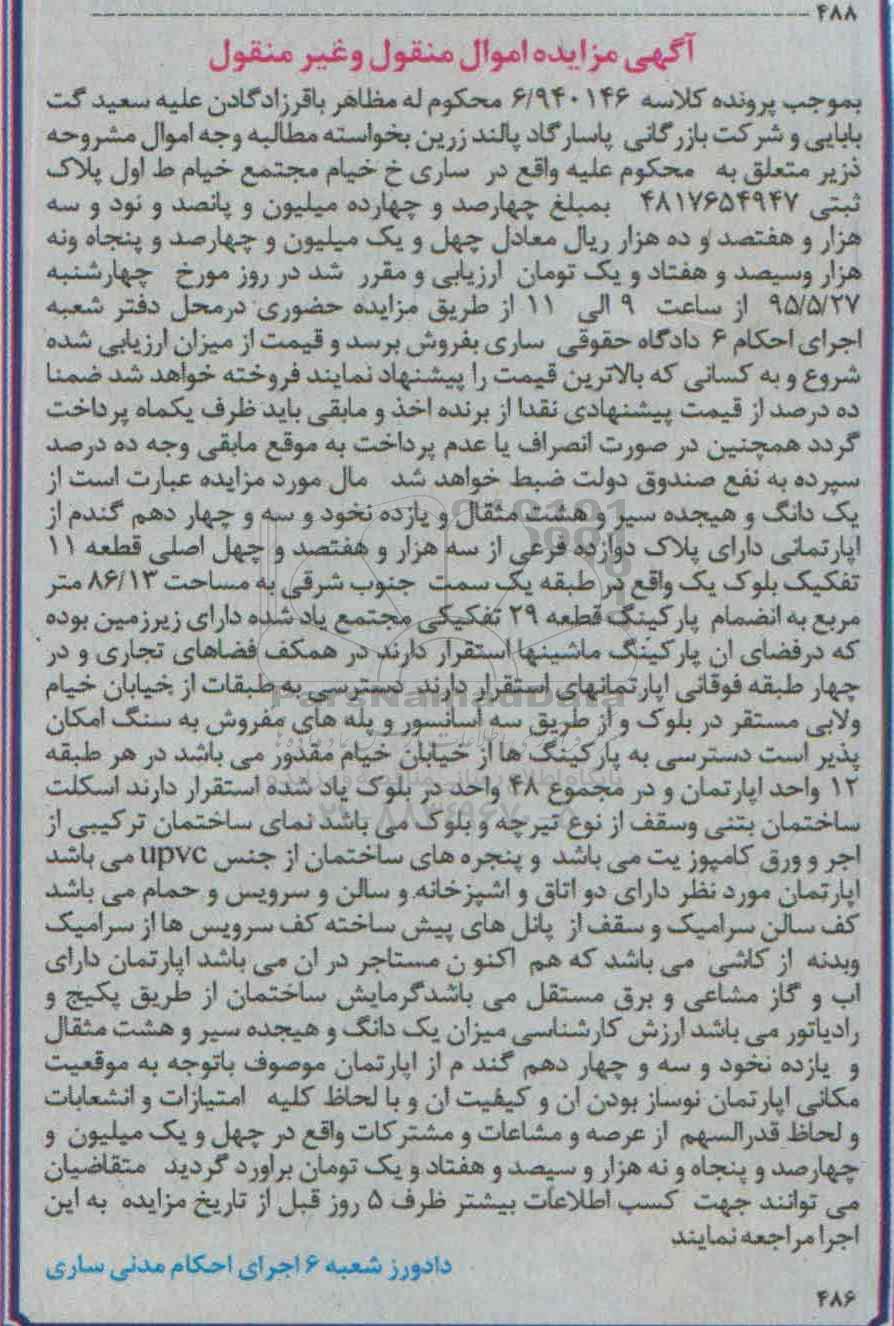 ۴۸۸
آگهی مزایده اموال منقول وغیر منقول
بموجب پرونده کلاسه ۶/۹۴۰۱۴۶ محکوم له مظاهر باقرزادگادن علیه سعید گت
بابایی و شرکت بازرگانی پاسارگاد پالند زرین بخواسته مطالبه وجه اموال مشروحه
ذزیر متعلق به محکوم علیه واقع در ساری خ خیام مجتمع خیام ط اول پلاک
ثبتی ۴۸۱۷۶۵۴۹۴۷ بمبلغ چهارصد و چهارده میلیون و پانصد و نود و سه
هزار و هفتصد و ده هزار ریال معادل چهل و یک میلیون و چهارصد و پنجاه ونه
هزار وسیصد و هفتاد و یک تومان ارزیابی و مقرر شد در روز مورخ چهارشنبه
۹۵/۵/۲۷ از ساعت ۹ الی ۱۱ از طریق مزایده حضوری درمحل دفتر شعبه
اجرای احکام ۶ دادگاه حقوقی ساری بفروش برسد و قیمت از میزان ارزیابی شده
شروع و به کسانی که بالاترین قیمت را پیشنهاد نمایند فروخته خواهد شد ضمنا
ده درصد از قیمت پیشنهادی نقدا از برنده اخذ و مابقی باید ظرف یکماه پرداخت
گردد همچنین در صورت انصراف یا عدم پرداخت به موقع مابقی وجه ده درصد
سپرده به نفع صندوق دولت ضبط خواهد شد مال مورد مزایده عبارت است از
یک دانگ و هیجده سیر و هشت مثقال و یازده نخود و سه و چهار دهم گندم از
اپارتمانی دارای پلاک دوازده فرعی از سه هزار و هفتصد و چهل اصلی قطعه ۱۱
تفکیک بلوک یک واقع در طبقه یک سمت جنوب شرقی به مساحت ۸۶/۱۳ متر
مربع به انضمام پارکینگ قطعه ۲۹ تفکیکی مجتمع یاد شده دارای زیرزمین بوده
که درفضای ان پارکینگ ماشینها استقرار دارند در همکف فضاهای تجاری و در
چهار طبقه فوقانی اپارتمانهای استقرار دارند دسترسی به طبقات از خیابان خیام
ولابی مستقر در بلوک و از طریق سه آسانسور و پله های مفروش به سنگ امکان
پذیر است دسترسی به پارکینگ ها از خیابان خیام مقدور می باشد در هر طبقه
۱۲ واحد اپارتمان و در مجموع ۴۸ واحد در بلوک یاد شده استقرار دارند اسکلت
ساختمان بتنی وسقف از نوع تیرچه و بلوک می باشد نمای ساختمان ترکیبی از
اجر و ورق کامپوزیت می باشد و پنجره های ساختمان از جنس upvc می باشد
اپارتمان مورد نظر دارای دو اتاق و اشپزخانه و سالن و سرویس و حمام می باشد
کف سالن سرامیک و سقف از پانل های پیش ساخته کف سرویس ها از سرامیک
وبدنه از کاشی می باشد که هم اکنو ن مستاجر در ان می باشد اپارتمان دارای
اب و گاز مشاعی و برق مستقل می باشدگرمایش ساختمان از طریق پکیج و
رادیاتور می باشد ارزش کارشناسی میزان یک دانگ و هیجده سیر و هشت مثقال
و یازده نخود و سه و چهار دهم گند م از اپارتمان موصوف باتوجه به موقعیت
مکانی اپارتمان نوساز بودن ان و کیفیت ان و با لحاظ کلیه امتیازات و انشعابات
و لحاظ قدرالسهم از عرصه و مشاعات و مشترکات واقع در چهل و یک میلیون و
چهارصد و پنجاه و نه هزار و سیصد و هفتاد و یک تومان براورد گردید متقاضیان
می توانند جهت کسب اطلاعات بیشتر ظرف ۵ روز قبل از تاریخ مزایده به این
اجرا مراجعه نمایند
دادورز شعبه ۶ اجرای احکام مدنی ساری
۴۸۶
ParsNamadData